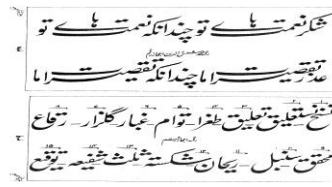 شکر نعمت ہاے تو چندانکہ نعمت ہاے تو
عذر تقصیرات ما چندانکہ تقصیرات ما
نسخ نستعلیق تعلیق طغرا توأم غبار گلزار رقاع
محقق سنبل ریحان شکستہ ثلث شفیعہ توقیع